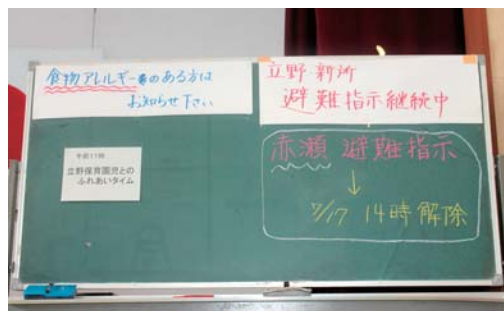 食物アレルギーのある方は
お知らせ下さい
午前11時
立野保育園児との
ふれあいタイム
立野 新所
避難指示継続中
赤瀬 避難指示
↓
7/17 14時 解除